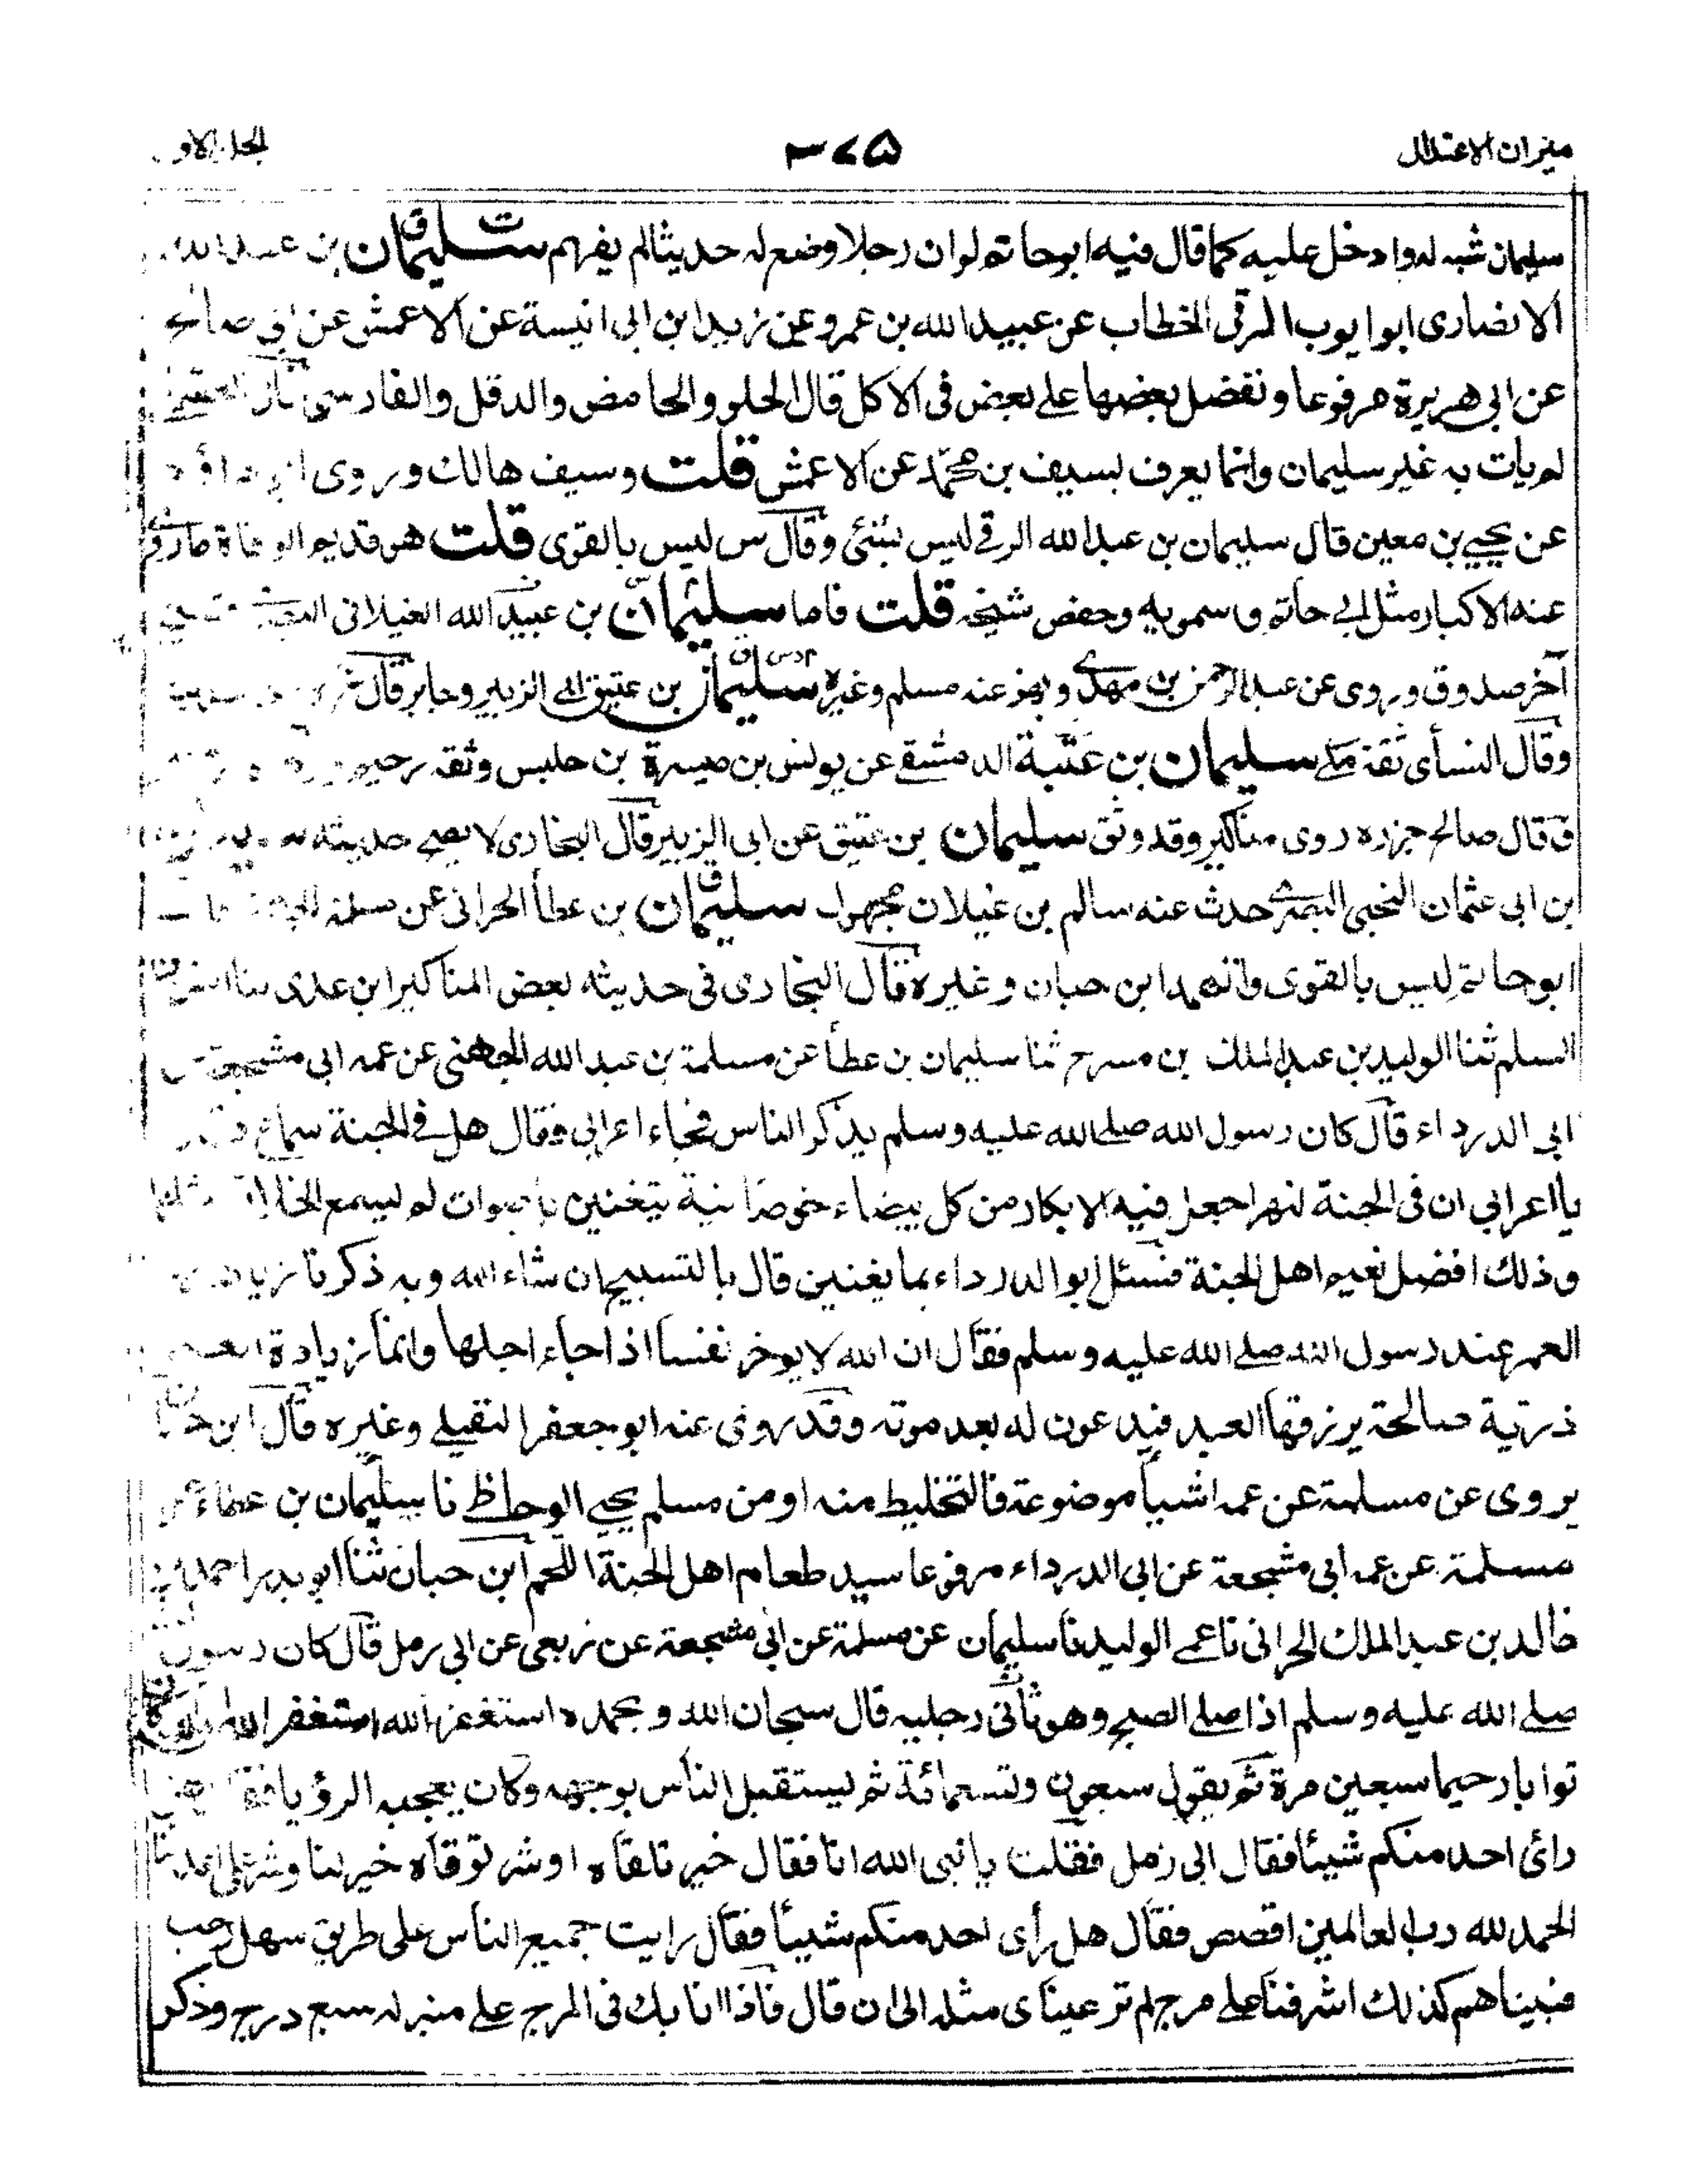 ميزان الاعتدال
٣٧٥
الجلد الاول
سليمان شبه له وادخل عليه كما قال فيه ابو حاتم لو ان رجلا وضع له حديثا لم يفهم سليمان بن
الانصارى ابو ايوب الرقى الخطاب عن عبيد الله بن عمرو عن زيد ابن ابى انيسة عن الاعمش عن ابى صالح
عن ابى هريرة مرفوعا ونفضل بعضها على بعض فى الاكل قال الحلو والحامض والدقل والفارسى
لم يات به غير سليمان وانما يعرف بسيف بن محمد عن الاعمش قلت وسيف هالك وروى
عن يحيى بن معين قال سليمان بن عبد الله الرقى ليس بشئ وقال س ليس بالقوى قلت هو قديم الوفاة
عنه الاكبار مثل ابى حاتم و سمويه وحفص شيخه قلت فاما سليمان بن عبيد الله الغيلانى
آخر صدوق وروى عن عبد الرحمن بن مهدى وبهز عنه مسلم وغيره سليمان بن عتيق ابى الزبير وجابر قال
وقال النسأى ثقة مكى سليمان بن عتبة الدمشقى عن يونس بن ميسرة بن حلبس وثقه
ق قال صالح جزره روى مناكير وقد وثق سليمان بن عتيق عن ابى الزبير قال البخارى لا يصح حديثه
بن ابى عثمان التجيبى البصرى حدث عنه سالم بن غيلان مجهول سليمان بن عطأ الحرانى عن مسلمة
ابو حاتم ليس بالقوى واتهمه ابن حبان وغيره قال البخارى فى حديثه بعض المناكير ابن عدى
السلم ثنا الوليد بن عبد الملك بن مسرح ثنا سليمان بن عطأ عن مسلمة بن عبد الله الجهنى عن عمه ابى مشجعة
ابى الدرداء قال كان رسول الله صلى الله عليه وسلم يذكر الناس فجاء اعرابى فقال هل فى الجنة سماع
يا اعرابى ان فى الجنة لنهرا جعل فيه الابكار من كل بيضاء خمصانية يتغنين باصوات لم يسمع
وذلك افضل نعيم اهل الجنة فسئل ابو الدرداء بما يغنين قال بالتسبيح ان شاء الله وبه ذكرنا
العمر عند رسول الله صلى الله عليه وسلم فقال ان الله لا يوخر نفسا اذا جاء اجلها وانما زيادة
ذرية صالحة يرزقها العبد فيدعون له بعد موته وقد روى عنه ابو جعفر النفيلى وغيره قال ابن
يروى عن مسلمة عن عمه اشيأ موضوعة فالتخليط منه او من مسلم يحيى الوحاظى نا سليمان بن عطاء
مسلمة عن عمه ابى مشجعة عن ابى الدرداء مرفوعا سيد طعام اهل الجنة اللحم ابن حبان ثنا ابو بدر احمد
خالد بن عبد الملك الحرانى نا عمى الوليد نا سليمان عن مسلمة عن ابى مشجعة عن ربعى عن ابى رمل قال كان رسول
صلى الله عليه وسلم اذا صلى الصبح وهو ثانى رجليه قال سبحان الله و بحمده استغفر الله استغفر الله
توابا رحيما سبعين مرة ثم يقول سبعون وتسعمائة ثم يستقبل الناس بوجهه وكان يعجبه الرؤيا
رائ احد منكم شيئا فقال ابى زمل فقلت يا نبى الله انا فقال خير تلقاه او شر توقاه خير لنا وشر على
الحمد لله رب العالمين اقصص فقال هل رأى احد منكم شيئا فقال رايت جميع الناس على طريق سهل رحب
فبيناهم كذلك اشرفنا على مرج لم تر عيناى مثله الى ان قال فاذا انا بك فى المرج على منبر له سبع درج وذكر